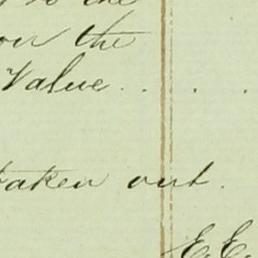 to the
on the
Value . . . .
taken out.
E. E.